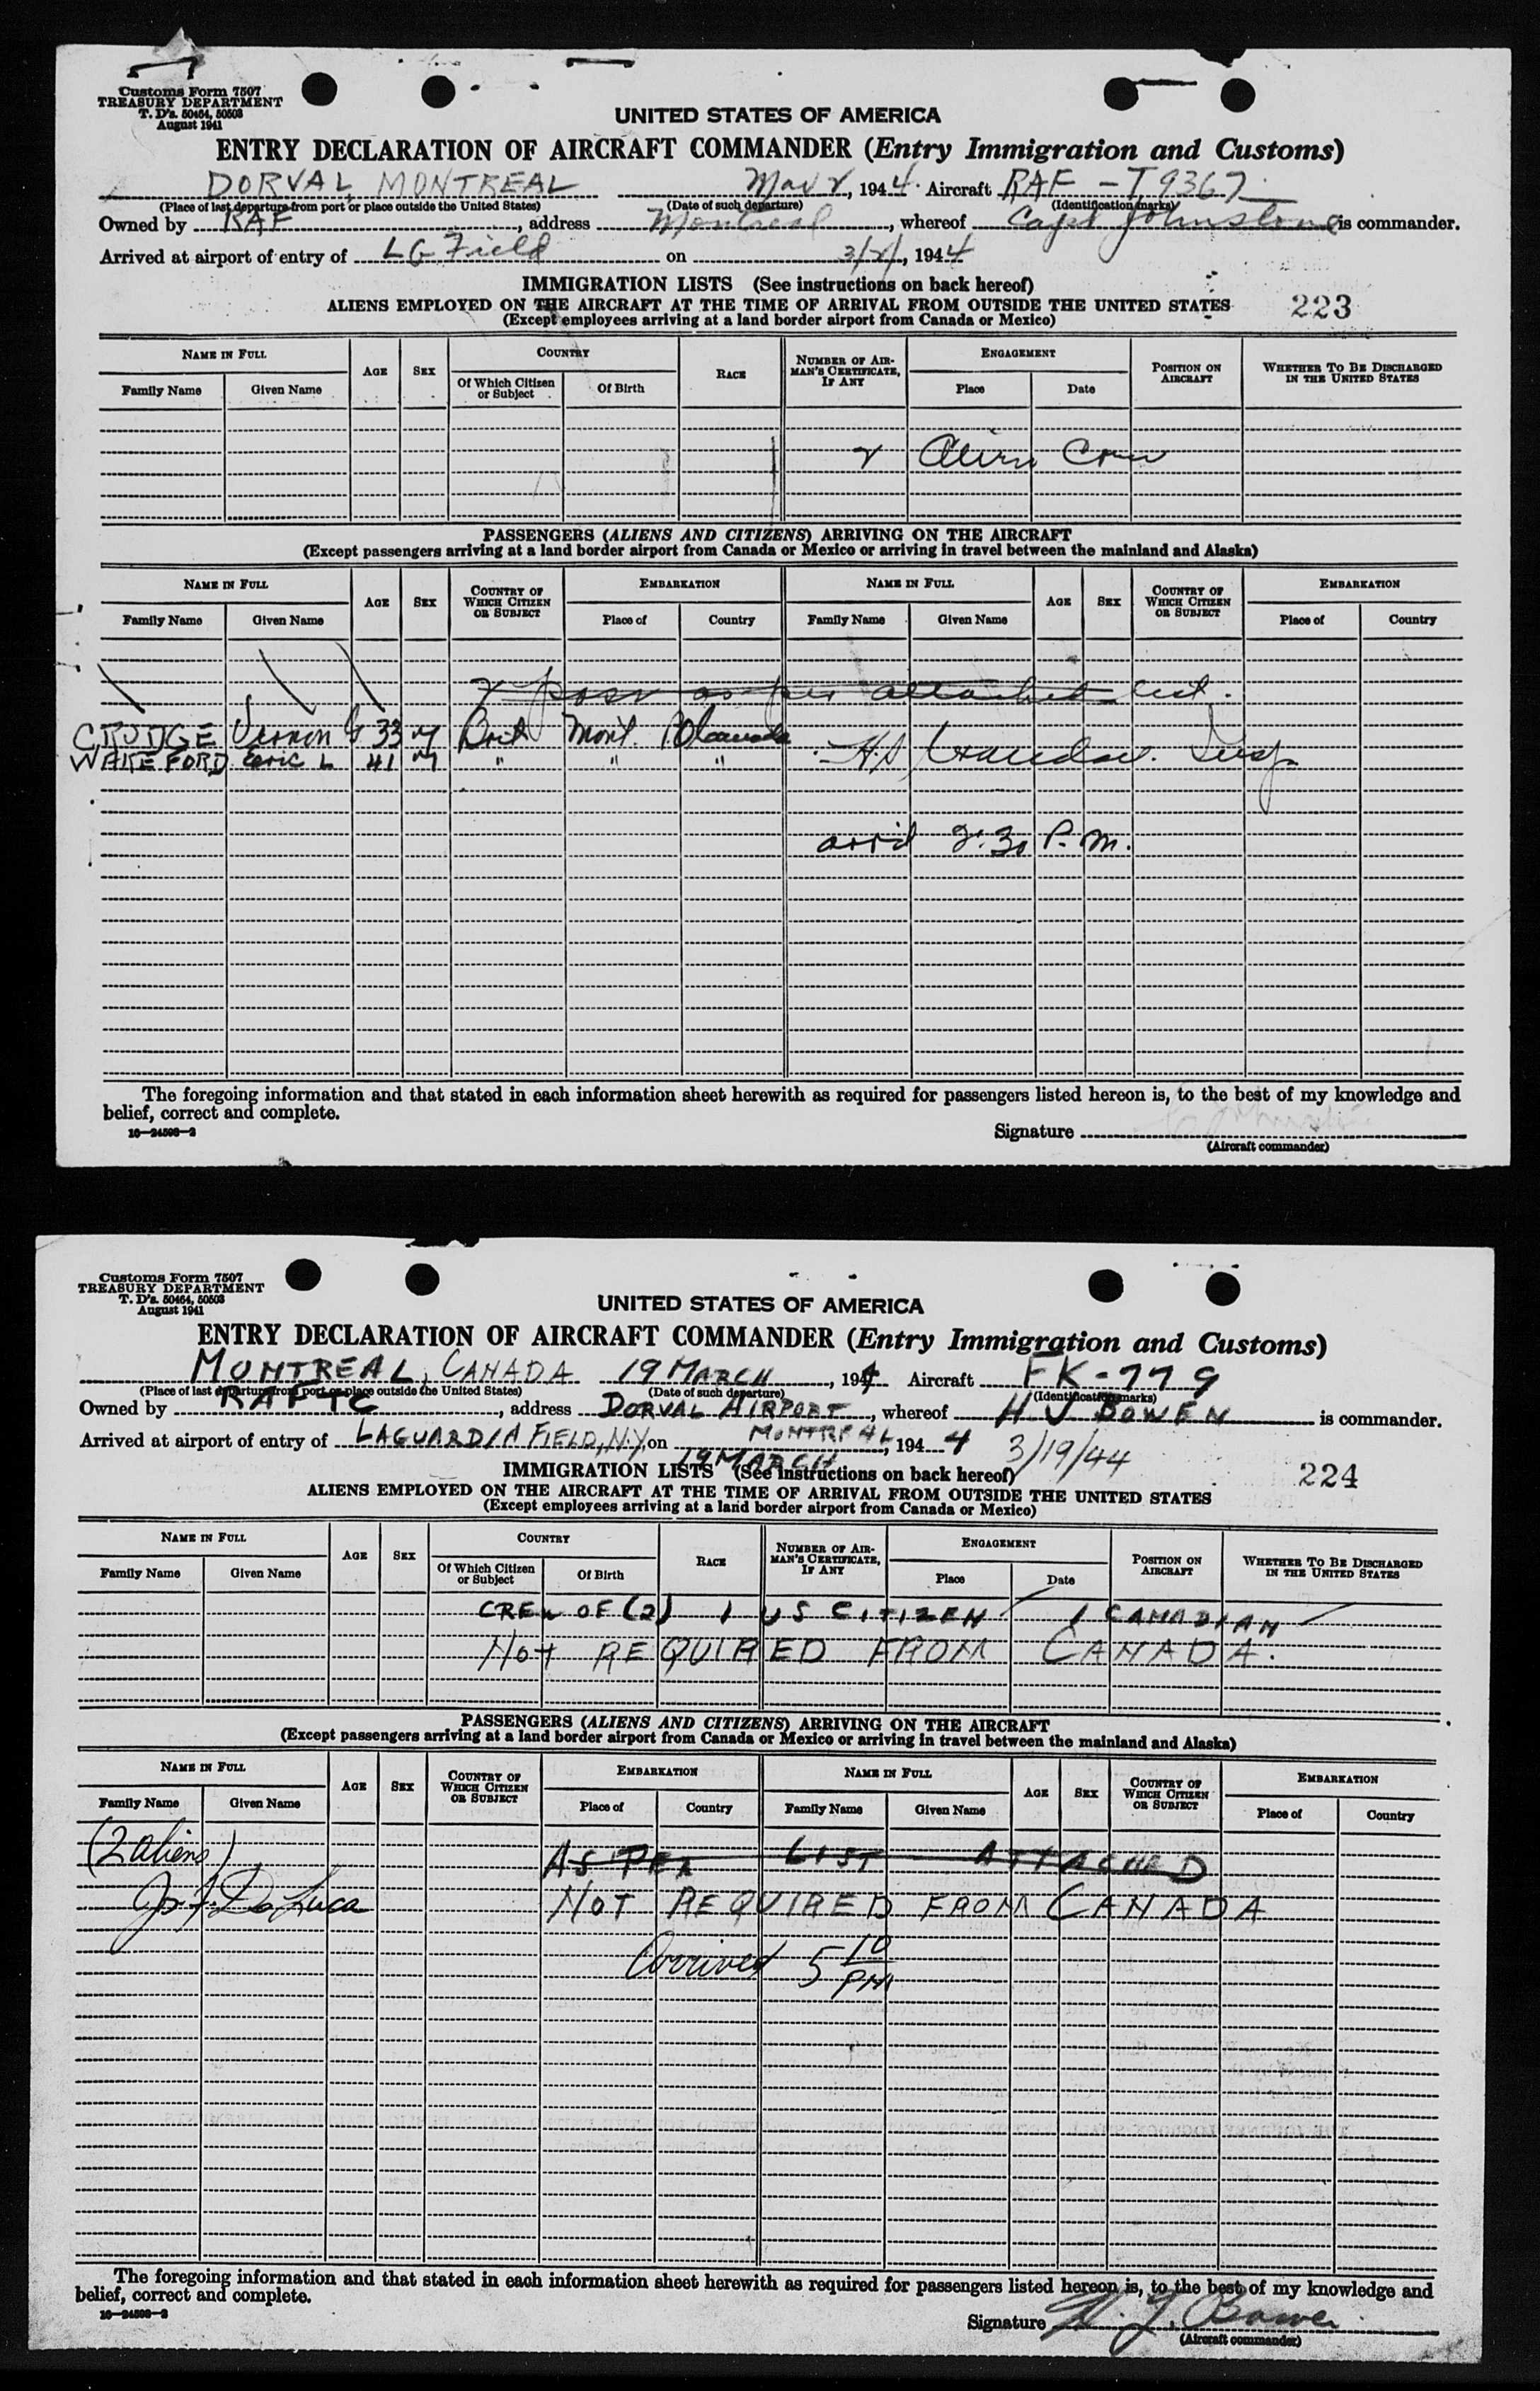 Customs Form 7507
TREASURY DEPARTMENT
T. D's. 50464, 50503
August 1941
UNITED STATES OF AMERICA
ENTRY DECLARATION OF AIRCRAFT COMMANDER (Entry Immigration and Customs)
DORVAL, MONTREAL Mar 2, 1944. Aircraft RAF - T9367
(Place of last departure from port or place outside the United States) (Date of such departure) (Identification marks)
Owned by RAF, address Montreal, whereof Capt Johnstone is commander.
Arrived at airport of entry of LG Field on 3/2/, 1944
IMMIGRATION LISTS (See instructions on back hereof)
ALIENS EMPLOYED ON THE AIRCRAFT AT THE TIME OF ARRIVAL FROM OUTSIDE THE UNITED STATES 223
(Except employees arriving at a land border airport from Canada or Mexico)
NAME IN FULL AGE SEX COUNTRY RACE NUMBER OF AIRMAN'S CERTIFICATE, IF ANY ENGAGEMENT POSITION ON AIRCRAFT WHETHER TO BE DISCHARGED IN THE UNITED STATES
Family Name Given Name Of Which Citizen or Subject Of Birth Place Date
2 Alien Crew
PASSENGERS (ALIENS AND CITIZENS) ARRIVING ON THE AIRCRAFT
(Except passengers arriving at a land border airport from Canada or Mexico or arriving in travel between the mainland and Alaska)
NAME IN FULL AGE SEX COUNTRY OF WHICH CITIZEN OR SUBJECT EMBARKATION NAME IN FULL AGE SEX COUNTRY OF WHICH CITIZEN OR SUBJECT EMBARKATION
Family Name Given Name Place of Country Family Name Given Name Place of Country
2 pass as per attached list.
CRUDGE Vernon G 33 M Brit Mont. PQ Canada
WAKEFORD Eric L 41 M " " " H.S. Insp
arr'd 2:30 P.M.
The foregoing information and that stated in each information sheet herewith as required for passengers listed hereon is, to the best of my knowledge and
belief, correct and complete.
16—24598-2
Signature
(Aircraft commander)
Customs Form 7507
TREASURY DEPARTMENT
T. D's. 50464, 50503
August 1941
UNITED STATES OF AMERICA
ENTRY DECLARATION OF AIRCRAFT COMMANDER (Entry Immigration and Customs)
MONTREAL, CANADA 19 MARCH, 1944 Aircraft FK-779
(Place of last departure from port or place outside the United States) (Date of such departure) (Identification marks)
Owned by RAFTC, address DORVAL AIRPORT, whereof H J BOWEN is commander.
Arrived at airport of entry of LAGUARDIA FIELD, N.Y, on MONTREAL, 1944 3/19/44
19 MARCH
IMMIGRATION LISTS (See instructions on back hereof) 224
ALIENS EMPLOYED ON THE AIRCRAFT AT THE TIME OF ARRIVAL FROM OUTSIDE THE UNITED STATES
(Except employees arriving at a land border airport from Canada or Mexico)
NAME IN FULL AGE SEX COUNTRY RACE NUMBER OF AIRMAN'S CERTIFICATE, IF ANY ENGAGEMENT POSITION ON AIRCRAFT WHETHER TO BE DISCHARGED IN THE UNITED STATES
Family Name Given Name Of Which Citizen or Subject Of Birth Place Date
CREW OF (2) 1 US CITIZEN 1 CANADIAN
NOT REQUIRED FROM CANADA.
PASSENGERS (ALIENS AND CITIZENS) ARRIVING ON THE AIRCRAFT
(Except passengers arriving at a land border airport from Canada or Mexico or arriving in travel between the mainland and Alaska)
NAME IN FULL AGE SEX COUNTRY OF WHICH CITIZEN OR SUBJECT EMBARKATION NAME IN FULL AGE SEX COUNTRY OF WHICH CITIZEN OR SUBJECT EMBARKATION
Family Name Given Name Place of Country Family Name Given Name Place of Country
(2 aliens) AS PER LIST ATTACHED
Jos. F. De Luca NOT REQUIRED FROM CANADA
Arrived 5 10 PM
The foregoing information and that stated in each information sheet herewith as required for passengers listed hereon is, to the best of my knowledge and
belief, correct and complete.
16—24598-2
Signature H. J. Bowen
(Aircraft commander)